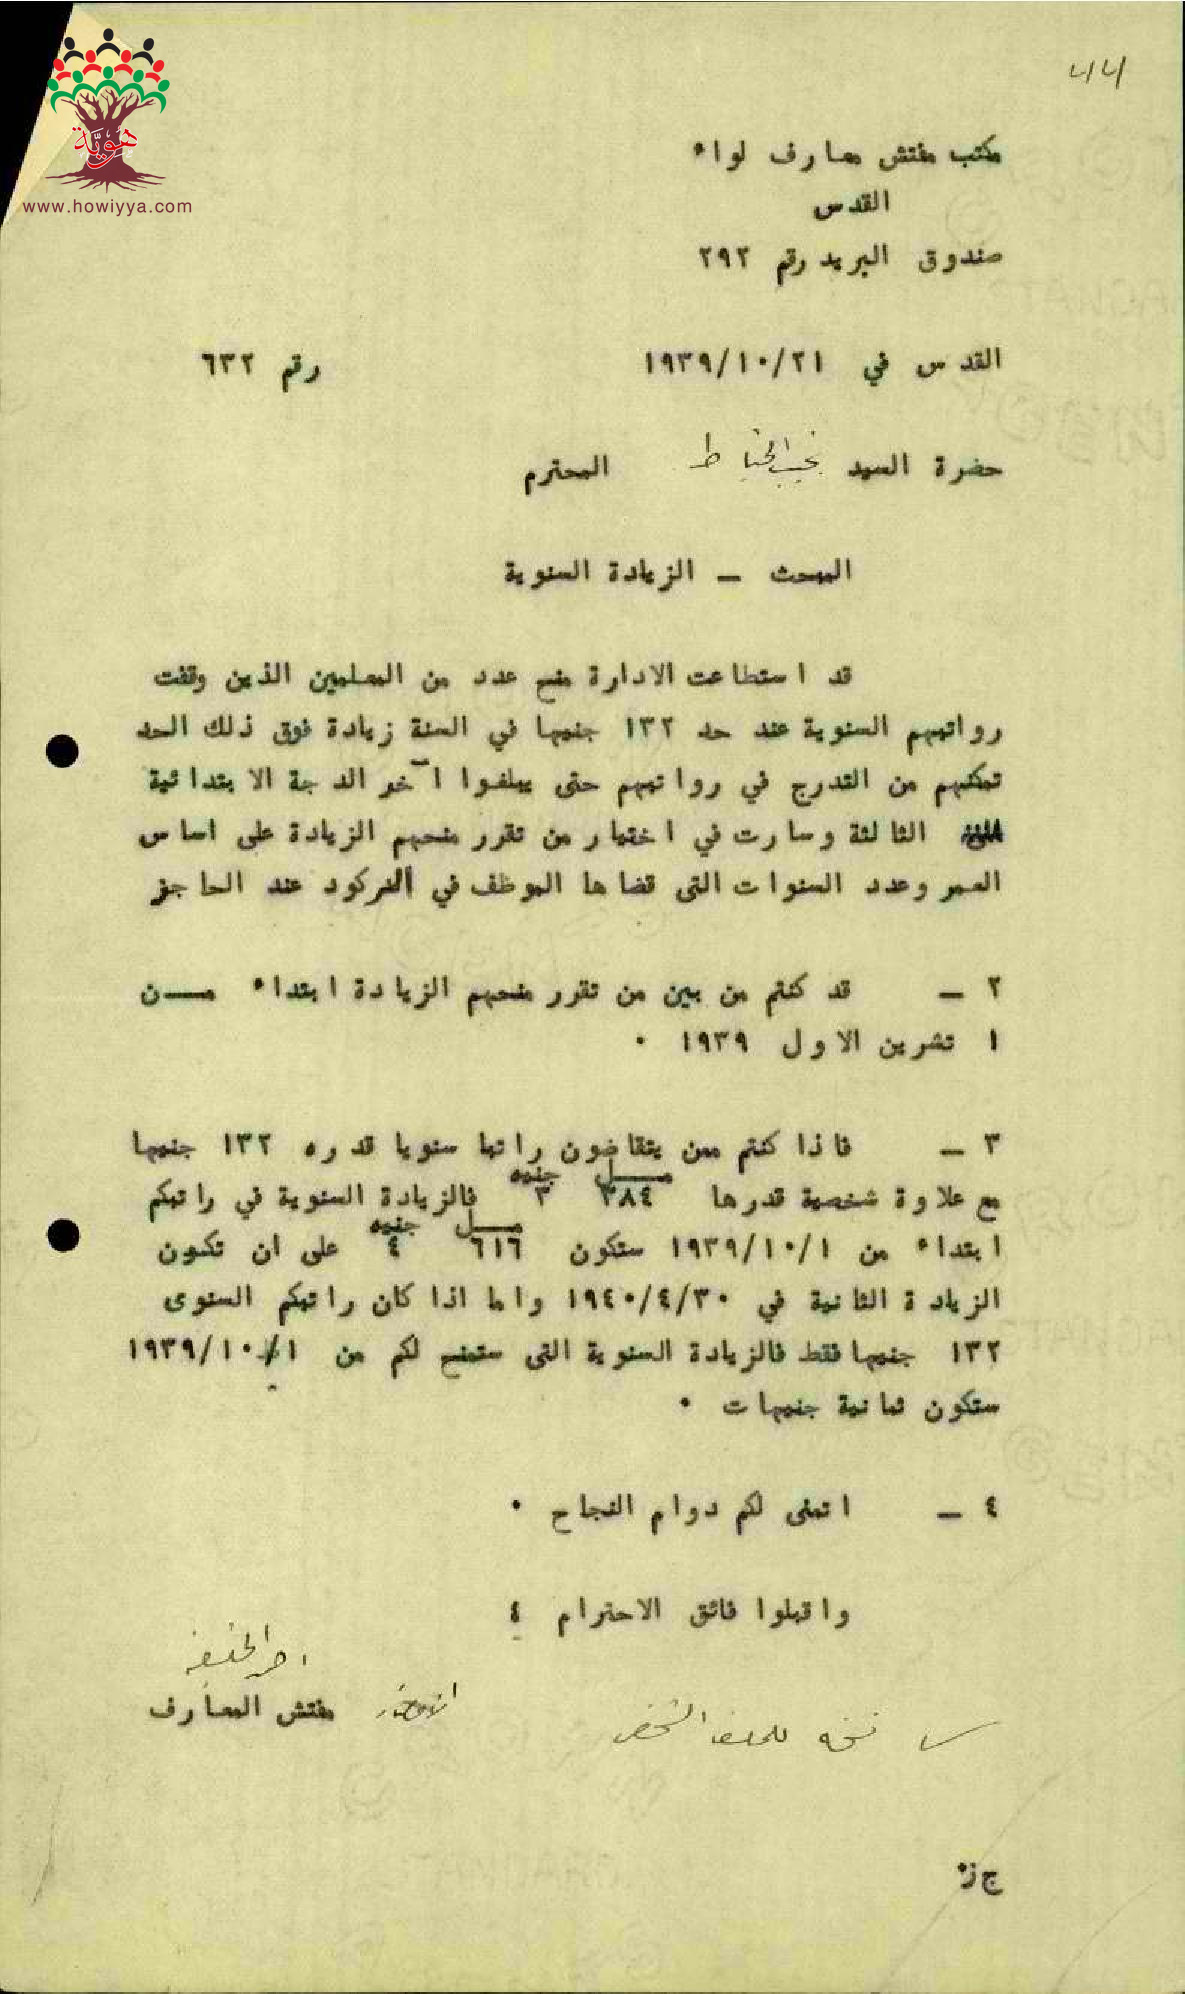 هوية
www.howiyya.com
مكتب مفتش معارف لواء
القدس
صندوق البريد رقم ٢٩٢
القدس في ٢١/١٠/١٩٣٩ رقم ٦٣٢
حضرة السيد نجيب الخياط المحترم
المبحث – الزيادة السنوية
قد استطاعت الادارة منح عدد من المعلمين الذين وقفت
رواتبهم السنوية عند حد ١٣٢ جنيها في السنة زيادة فوق ذلك الحد
تمكنهم من التدرج في رواتبهم حتى يبلغوا آخر الدجة الابتدائية
الثالثة وسارت في اختيار من تقرر منحهم الزيادة على اساس
العمر وعدد السنوات التى قضاها الموظف في الركود عند الحاجز
٢ – قد كنتم من بين من تقرر منحهم الزيادة ابتداء مـــن
١ تشرين الاول ١٩٣٩ .
٣ – فاذا كنتم ممن يتقاضون راتبا سنويا قدره ١٣٢ جنيها
مـــل جنيه
مع علاوة شخصية قدرها ٣٨٤ ٣ فالزيادة السنوية في راتبكم
مـــل جنيه
ابتداء من ١/١٠/١٩٣٩ ستكون ٦١٦ ٤ على ان تكون
الزيادة الثانية في ٣٠/٤/١٩٤٠ واما اذا كان راتبكم السنوى
١٣٢ جنيها فقط فالزيادة السنوية التى ستمنح لكم من ١/١٠/١٩٣٩
ستكون ثمانية جنيهات .
٤ – اتمنى لكم دوام النجاح .
واقبلوا فائق الاحترام ٤
احمد خليفه
مفتش المعارف
نسخه للملف الشخصي
ج ز.